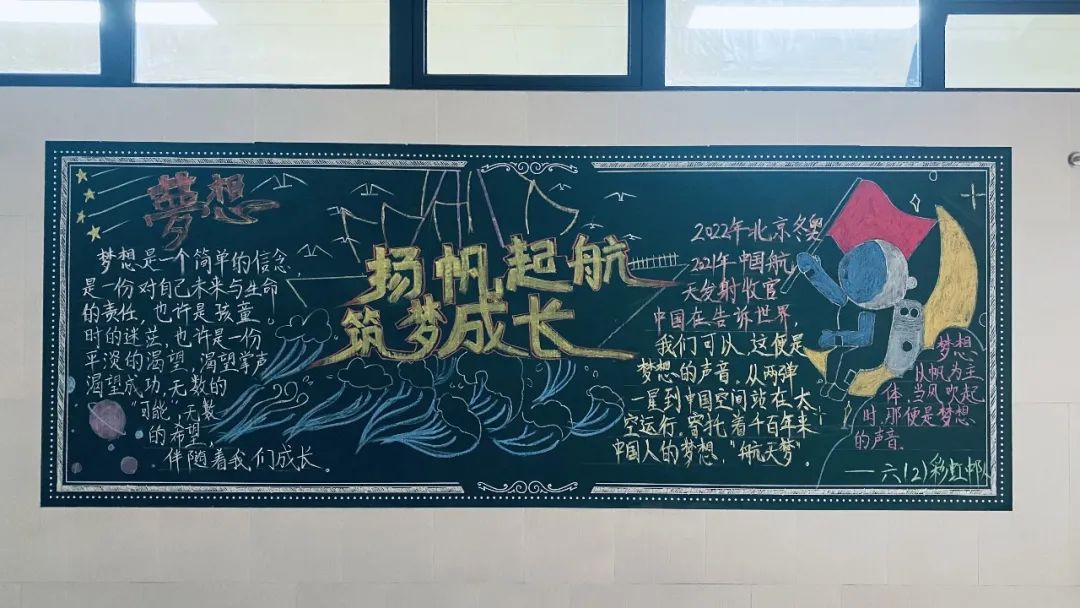 夢想
梦想是一个简单的信念,
是一份对自己未来与生命
的责任,也许是孩童
时的迷茫,也许是一份
平淡的渴望,渴望掌声
渴望成功,无数的
可能,无数
的希望,
伴随着我们成长。
扬帆起航
筑梦成长
2022年北京冬奥
2021年中国航
天发射收官
中国在告诉世界,
我们可以,这便是
梦想的声音。从两弹
一星到中国空间站在太
空运行,寄托着千百年来
中国人的梦想,“航天梦”。
梦想
以帆为主
体,当风吹起
时,那便是梦想
的声音。
——六(2)彩虹中队